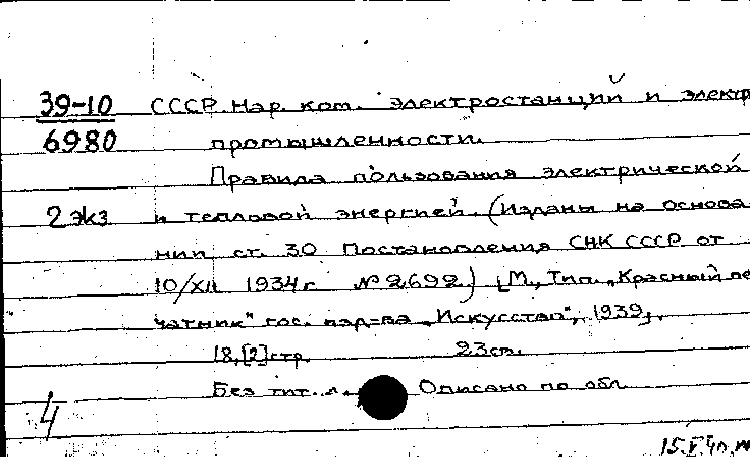 39-10 СССР. Нар. ком. электростанций и электр
6980 промышленности.
Правила пользования электрической
2 экз и тепловой энергией. (Изданы на основа
нии ст. 30 Постановления СНК СССР от
10/XII 1934 г. № 2692) [М., Тип. „Красный пе
чатник" гос. изд-ва „Искусство", 1939].
18, [2] стр. 23 см.
Без тит. л. Описано по обл.
4
15.V.40